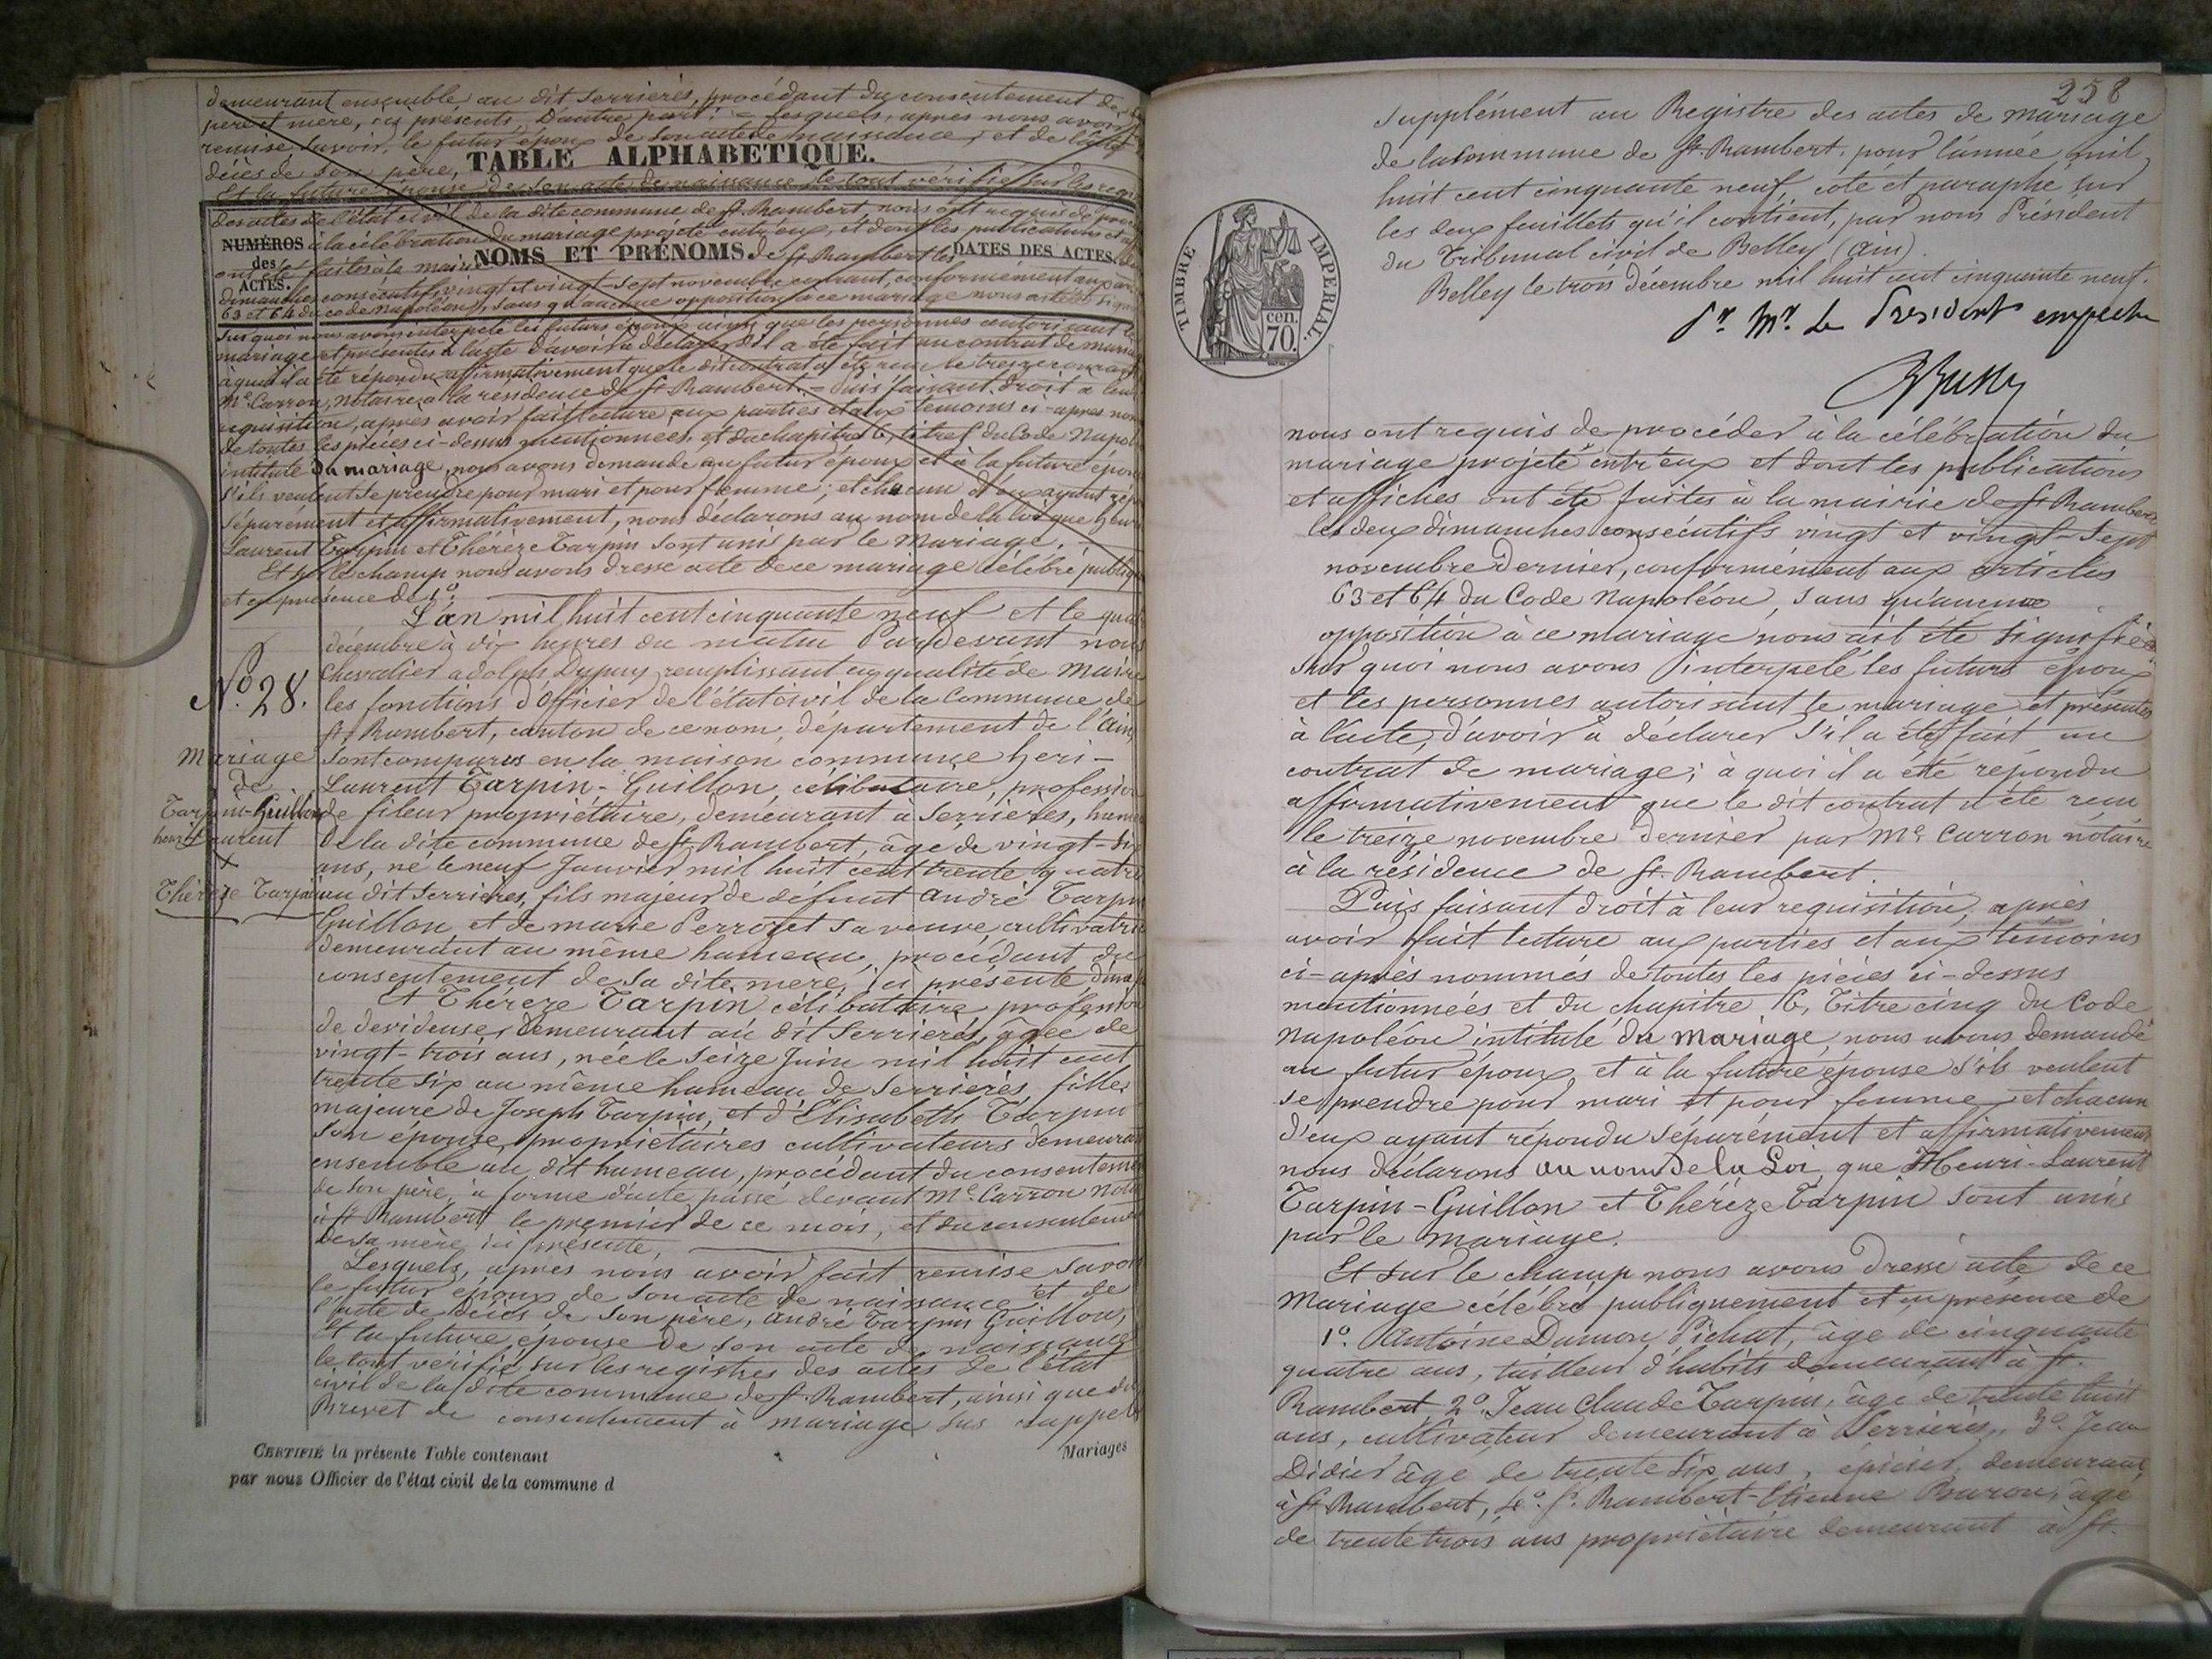 demeurant ensemble au dit Serrières, procédant du consentement de
père et mère, ici présents, D'autre part: = Lesquels, après nous avoir
remise savoir, le futur époux de son acte de naissance, et de l'acte
décès de son père,
TABLE ALPHABETIQUE.
Et la future épouse de son acte de naissance, le tout vérifié sur les
des actes de l'état civil de la dite commune de St. Rambert, nous ont requis de
à la célébration du mariage projeté entr'eux, et dont les publications et
NUMÉROS
des
ACTES.
NOMS ET PRÉNOMS.
DATES DES ACTES.
ont été faites à la mairie de St Rambert les
dimanches consécutifs, vingt et vingt-sept novembre courant, conformément aux
63 et 64 du code Napoléon, sans qu'aucune opposition à ce mariage nous ait été
Sur quoi nous avons interpelé les futurs époux ainsi que les personnes autorisant le
mariage et présentes à l'acte d'avoir à déclarer s'il a été fait un contrat de mariage
à quoi il a été répondu affirmativement que le dit contrat a été reçu le treize courant
Me. Carron, notaire à la résidence de St Rambert. = Puis faisant droit à leur
réquisition, après avoir fait lecture aux parties et aux témoins ci-après
de toutes les pièces ci-dessus mentionnées, et du chapitre 6, titre 5 du Code
intitulé du mariage, nous avons demandé au futur époux et à la future
s'ils veulent se prendre pour mari et pour femme; et chacun d'eux ayant
séparément et affirmativement, nous déclarons au nom de la loi que
Laurent Tarpin et Thérèze Tarpin sont unis par le Mariage. =
Et sur le champ nous avons dressé acte de ce mariage célébré
et en présence de 1o.
L'an mil huit cent cinquante neuf et le
décembre à dix heures du matin Pardevant nous
Chevalier adolph Dupuy remplissant en qualité de Maire
No. 28. les fonctions d'officier de l'état civil de la Commune de
St. Rambert, canton de ce nom, département de l'Ain,
Mariage
de
Tarpin-Guillon
henri Laurent
+
Thérèze Tarpin
Sont comparus en la maison commune heri-
Laurent Tarpin-Guillon, célibataire, profession
de fileur propriétaire, demeurant à Serrières,
de la dite commune de St. Rambert, âgé de vingt-
ans, né le neuf Janvier mil huit cent trente quatre
au dit Serrières, fils majeur de défunt André
Guillon et de marie Perrozet sa veuve,
demeurant au même hameau, procédant du
consentement de sa dite mère, ici présente,
Et Thérèze Tarpin célibataire, profession
de devideuse, demeurant au dit Serrières, âgée de
vingt-trois ans, née le seize Juin mil huit cent
trente six au même hameau de Serrières, fille
majeure de Joseph Tarpin, et d'Elisabeth Tarpin
son épouse, propriétaires cultivateurs
ensemble au dit hameau, procédant du
de son père, à forme d'acte passé devant Me. Carron
à St Rambert le premier de ce mois, et du
de sa mère ici présente,
Lesquels, après nous avoir fait remise
le futur époux de son acte de naissance et de
l'acte de décès de son père, André Tarpin Guillon,
Et la future épouse de son acte de naissance
le tout vérifié sur les registres des actes de l'état
civil de la dite commune de St. Rambert, ainsi que du
Brevet de consentement à mariage sus
CERTIFIÉ la présente Table contenant
Mariages
par nous Officier de l'état civil de la commune d
258
Supplément au Registre des actes de mariage
de la commune de St. Rambert, pour l'année mil
huit cent cinquante neuf, coté et paraphé sur
les deux feuillets qu'il contient, par nous Président
du Tribunal civil de Belley (Ain)
Belley le trois décembre mil huit cent cinquante neuf.
Pr. Mr. Le President empeché
TIMBRE IMPERIAL.
70. cen.
nous ont requis de procéder à la célébration du
mariage projeté entr'eux et dont les publications
et affiches ont été faites à la mairie de St Rambert
les deux dimanches consécutifs vingt et vingt-sept
novembre dernier, conformément aux articles
63 et 64 du Code Napoléon, sans qu'aucune
opposition à ce mariage nous ait été signifiée
sur quoi nous avons interpelé les futurs époux
et les personnes autorisant le mariage et présentes
à l'acte, d'avoir à déclarer s'il a été fait un
contrat de mariage; à quoi il a été répondu
affirmativement que le dit contrat a été reçu
le treize novembre dernier par Me. Carron notaire
à la résidence de St. Rambert.
Puis faisant droit à leur requisition, après
avoir fait lecture aux parties et aux témoins
ci-après nommés de toutes les pièces ci-dessus
mentionnées et du chapitre 6, Titre cinq du Code
Napoléon intitulé du Mariage, nous avons demandé
au futur époux, et à la future épouse s'ils veulent
se prendre pour mari et pour femme, et chacun
d'eux ayant répondu séparément et affirmativement
nous déclarons au nom de la Loi, que Henri-Laurent
Tarpin-Guillon et Thérèze Tarpin sont unis
par le mariage.
Et sur le champ nous avons dressé acte de ce
Mariage célébré publiquement et en présence de
1o. Antoine Damon Pichat, âgé de cinquante
quatre ans, tailleur d'habits demeurant à St.
Rambert, 2o. Jean Claude Tarpin, âgé de trente huit
ans, cultivateur demeurant à Serrières, 3o. Jean
Didier âgé de trente six ans, épicier, demeurant
à St Rambert, 4o. St. Rambert-Etienne Baron, âgé
de trente trois ans propriétaire demeurant à St.